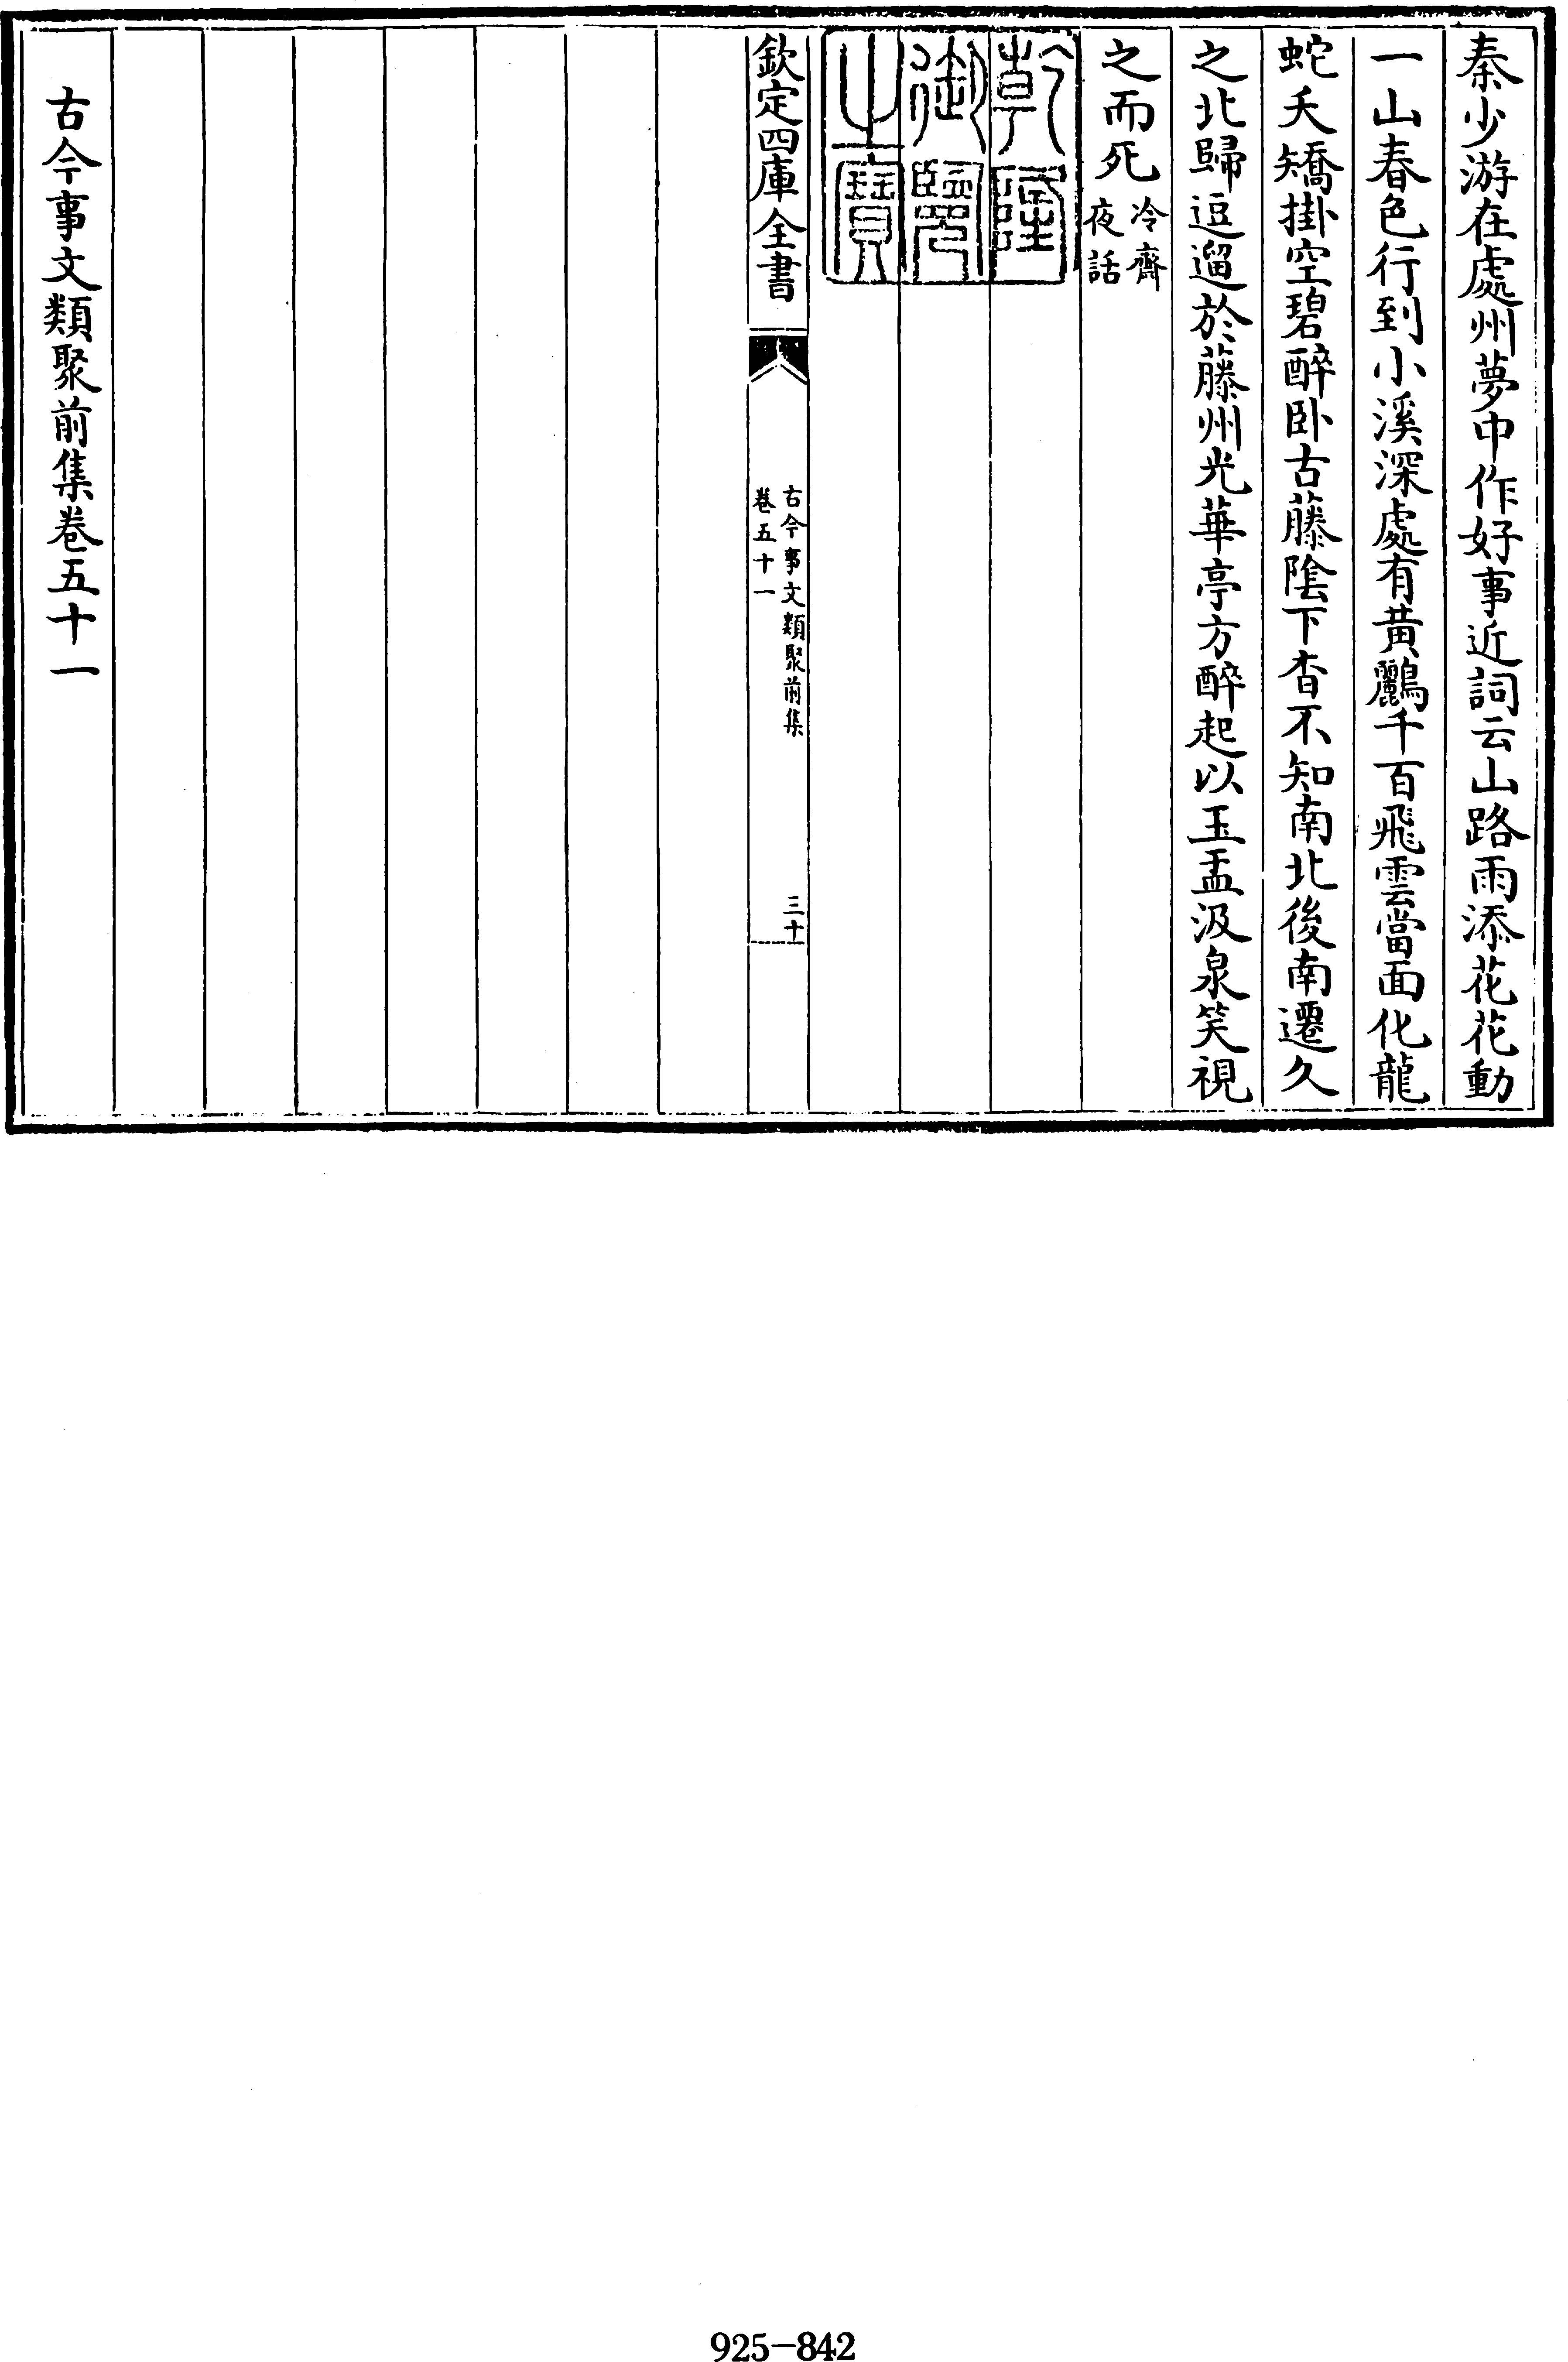 秦少游在處州夢中作好事近詞云山路雨添花花動
一山春色行到小溪深處有黄鸝千百飛雲當面化龍
蛇夭矯掛空碧醉卧古藤陰下杳不知南北後南遷久
之北歸逗遛於藤州光華亭方醉起以玉盂汲泉笑視
之而死冷齋
夜話
乾隆
御覽
之寶
欽定四庫全書
古今事文類聚前集
卷五十一
三十
古今事文類聚前集卷五十一
925-842